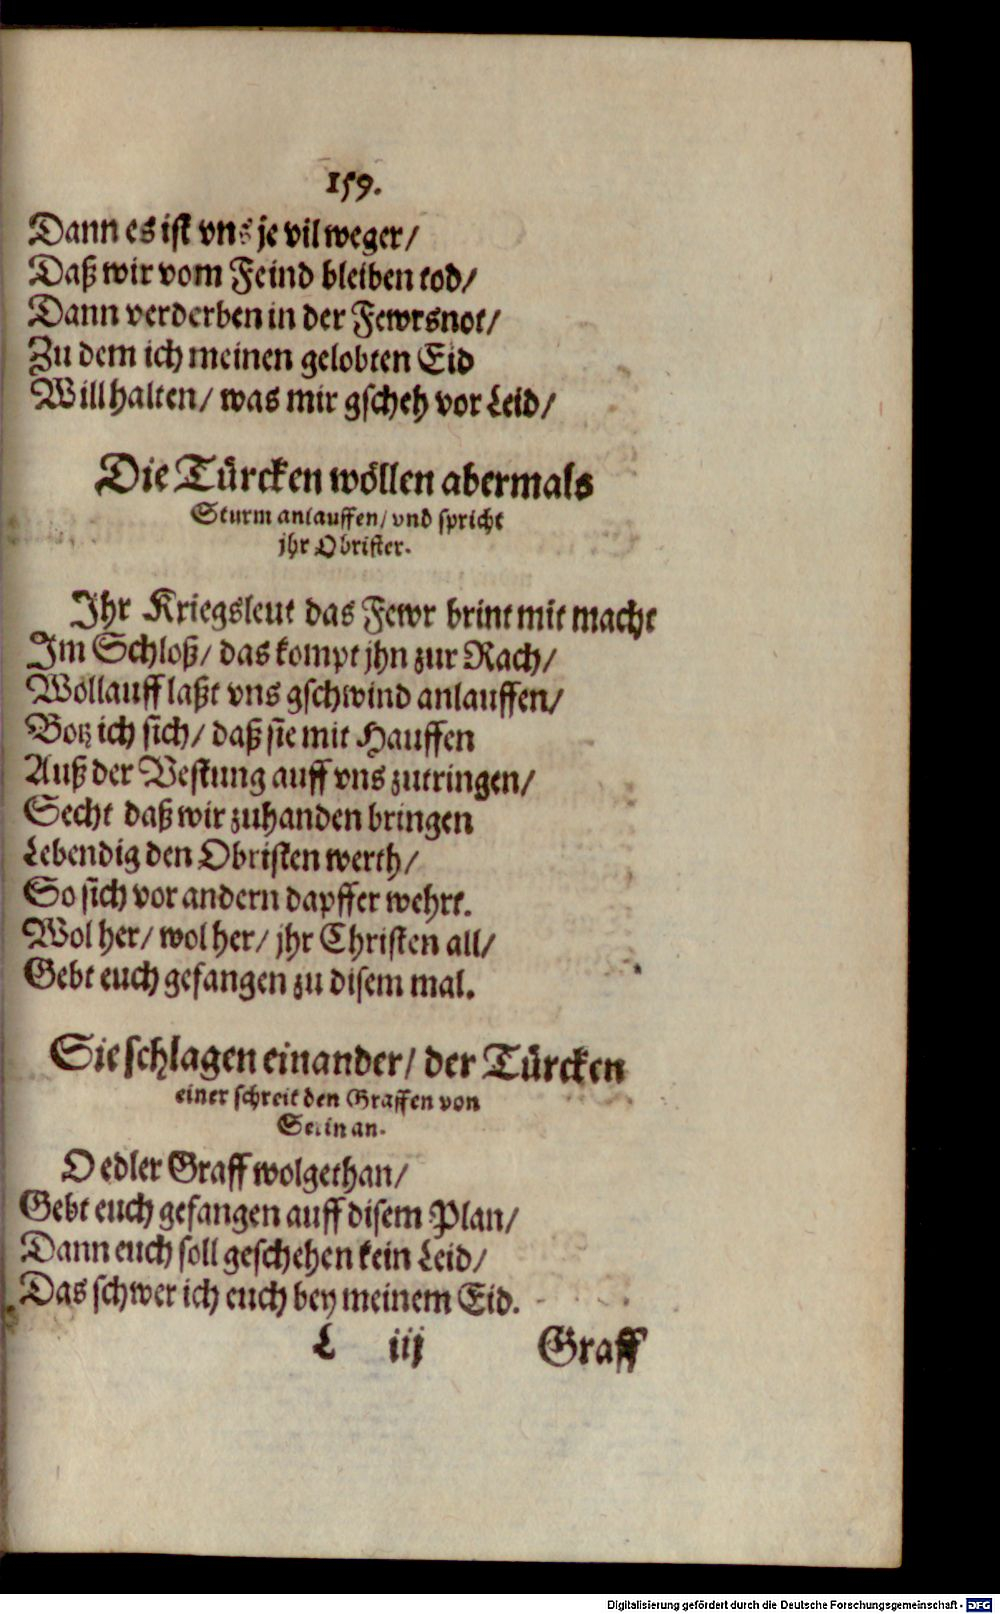 159.
Dann es ist vns je vil weger/
Daß wir vom Feind bleiben tod/
Dann verderben in der Fewrsnot/
Zu dem ich meinen gelobten Eid
Will halten/ was mir gscheh vor Leid/
Die Türcken wöllen abermals
Sturm anlauffen/ vnd spricht
jhr Obrister.
Ihr Kriegsleut das Fewr brint mit macht
Im Schloß/ das kompt jhn zur Rach/
Wollauff laßt vns gschwind anlauffen/
Botz ich sich/ daß sie mit Hauffen
Auß der Vestung auff vns zutringen/
Secht daß wir zuhanden bringen
Lebendig den Obristen werth/
So sich vor andern dapffer wehrt.
Wol her/ wol her/ jhr Christen all/
Gebt euch gefangen zu disem mal.
Sie schlagen einander/ der Türcken
einer schreit den Graffen von
Serin an.
O edler Graff wolgethan/
Gebt euch gefangen auff disem Plan/
Dann euch soll geschehen kein Leid/
Das schwer ich euch bey meinem Eid.
L iij Graff
Digitalisierung gefördert durch die Deutsche Forschungsgemeinschaft - DFG